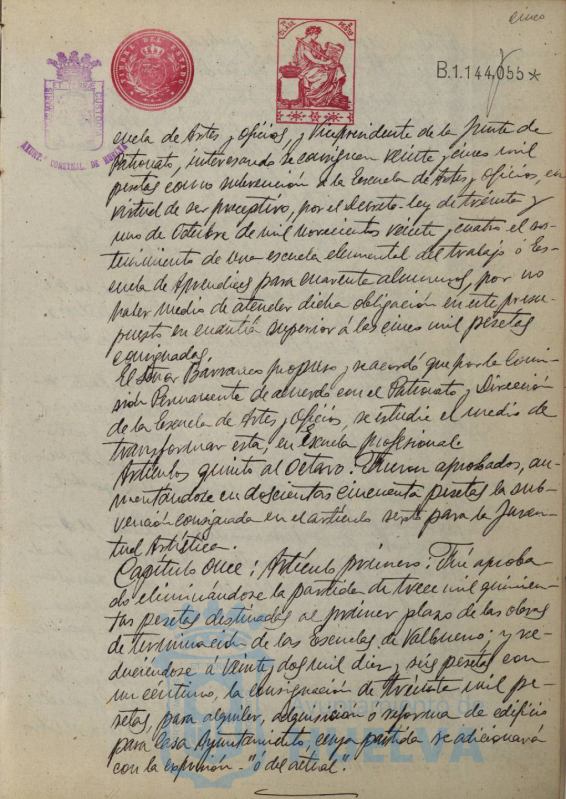 cinco
TIMBRE DEL ESTADO
CLASE
B.1.144,055*
AYUNT. CONSTNAL. DE HUELVA
cuela de Artes y Oficios, y Vicepresidente de la Junta de
Patronato, interesando se consignen veinte y cinco mil
pesetas como subvención a la Escuela de Artes y Oficios, en
virtud de ser preceptivo, por el Decreto-ley de treinta y
uno de Octubre de mil novecientos veinte y cuatro el sos-
tenimiento de una escuela elemental del trabajo ó Es-
cuela de Aprendices para cuarenta alumnos, por no
haber medio de atender dicha obligación en este presu-
puesto en cuantía superior á las cinco mil pesetas
consignadas.
El Señor Barranco propuso y se acordó que por la Comi-
sión Permanente de acuerdo con el Patronato y Dirección
de la Escuela de Artes y Oficios, se estudie el medio de
transformar esta, en Escuela profesional.
Artículos quinto al Octavo: Fueron aprobados, au-
mentándose en doscientas cincuenta pesetas la sub-
vención consignada en el artículo septº para la Juven-
tud Artística.
Capítulo Once: Artículo primero: Fué aproba-
do eliminándose la partida de trece mil quinien-
tas pesetas destinadas al primer plazo de las obras
de terminación de las Escuelas de Valbueno; y re-
duciéndose á veinte y dos mil diez y seis pesetas con
un céntimo, la consignación de treinta mil pe-
setas, para alquiler, adquisición ó reforma de edificio
para Casa Ayuntamiento, cuya partida se adicionará
con la expresión - "ó del actual".
Ayuntamiento de
HUELVA